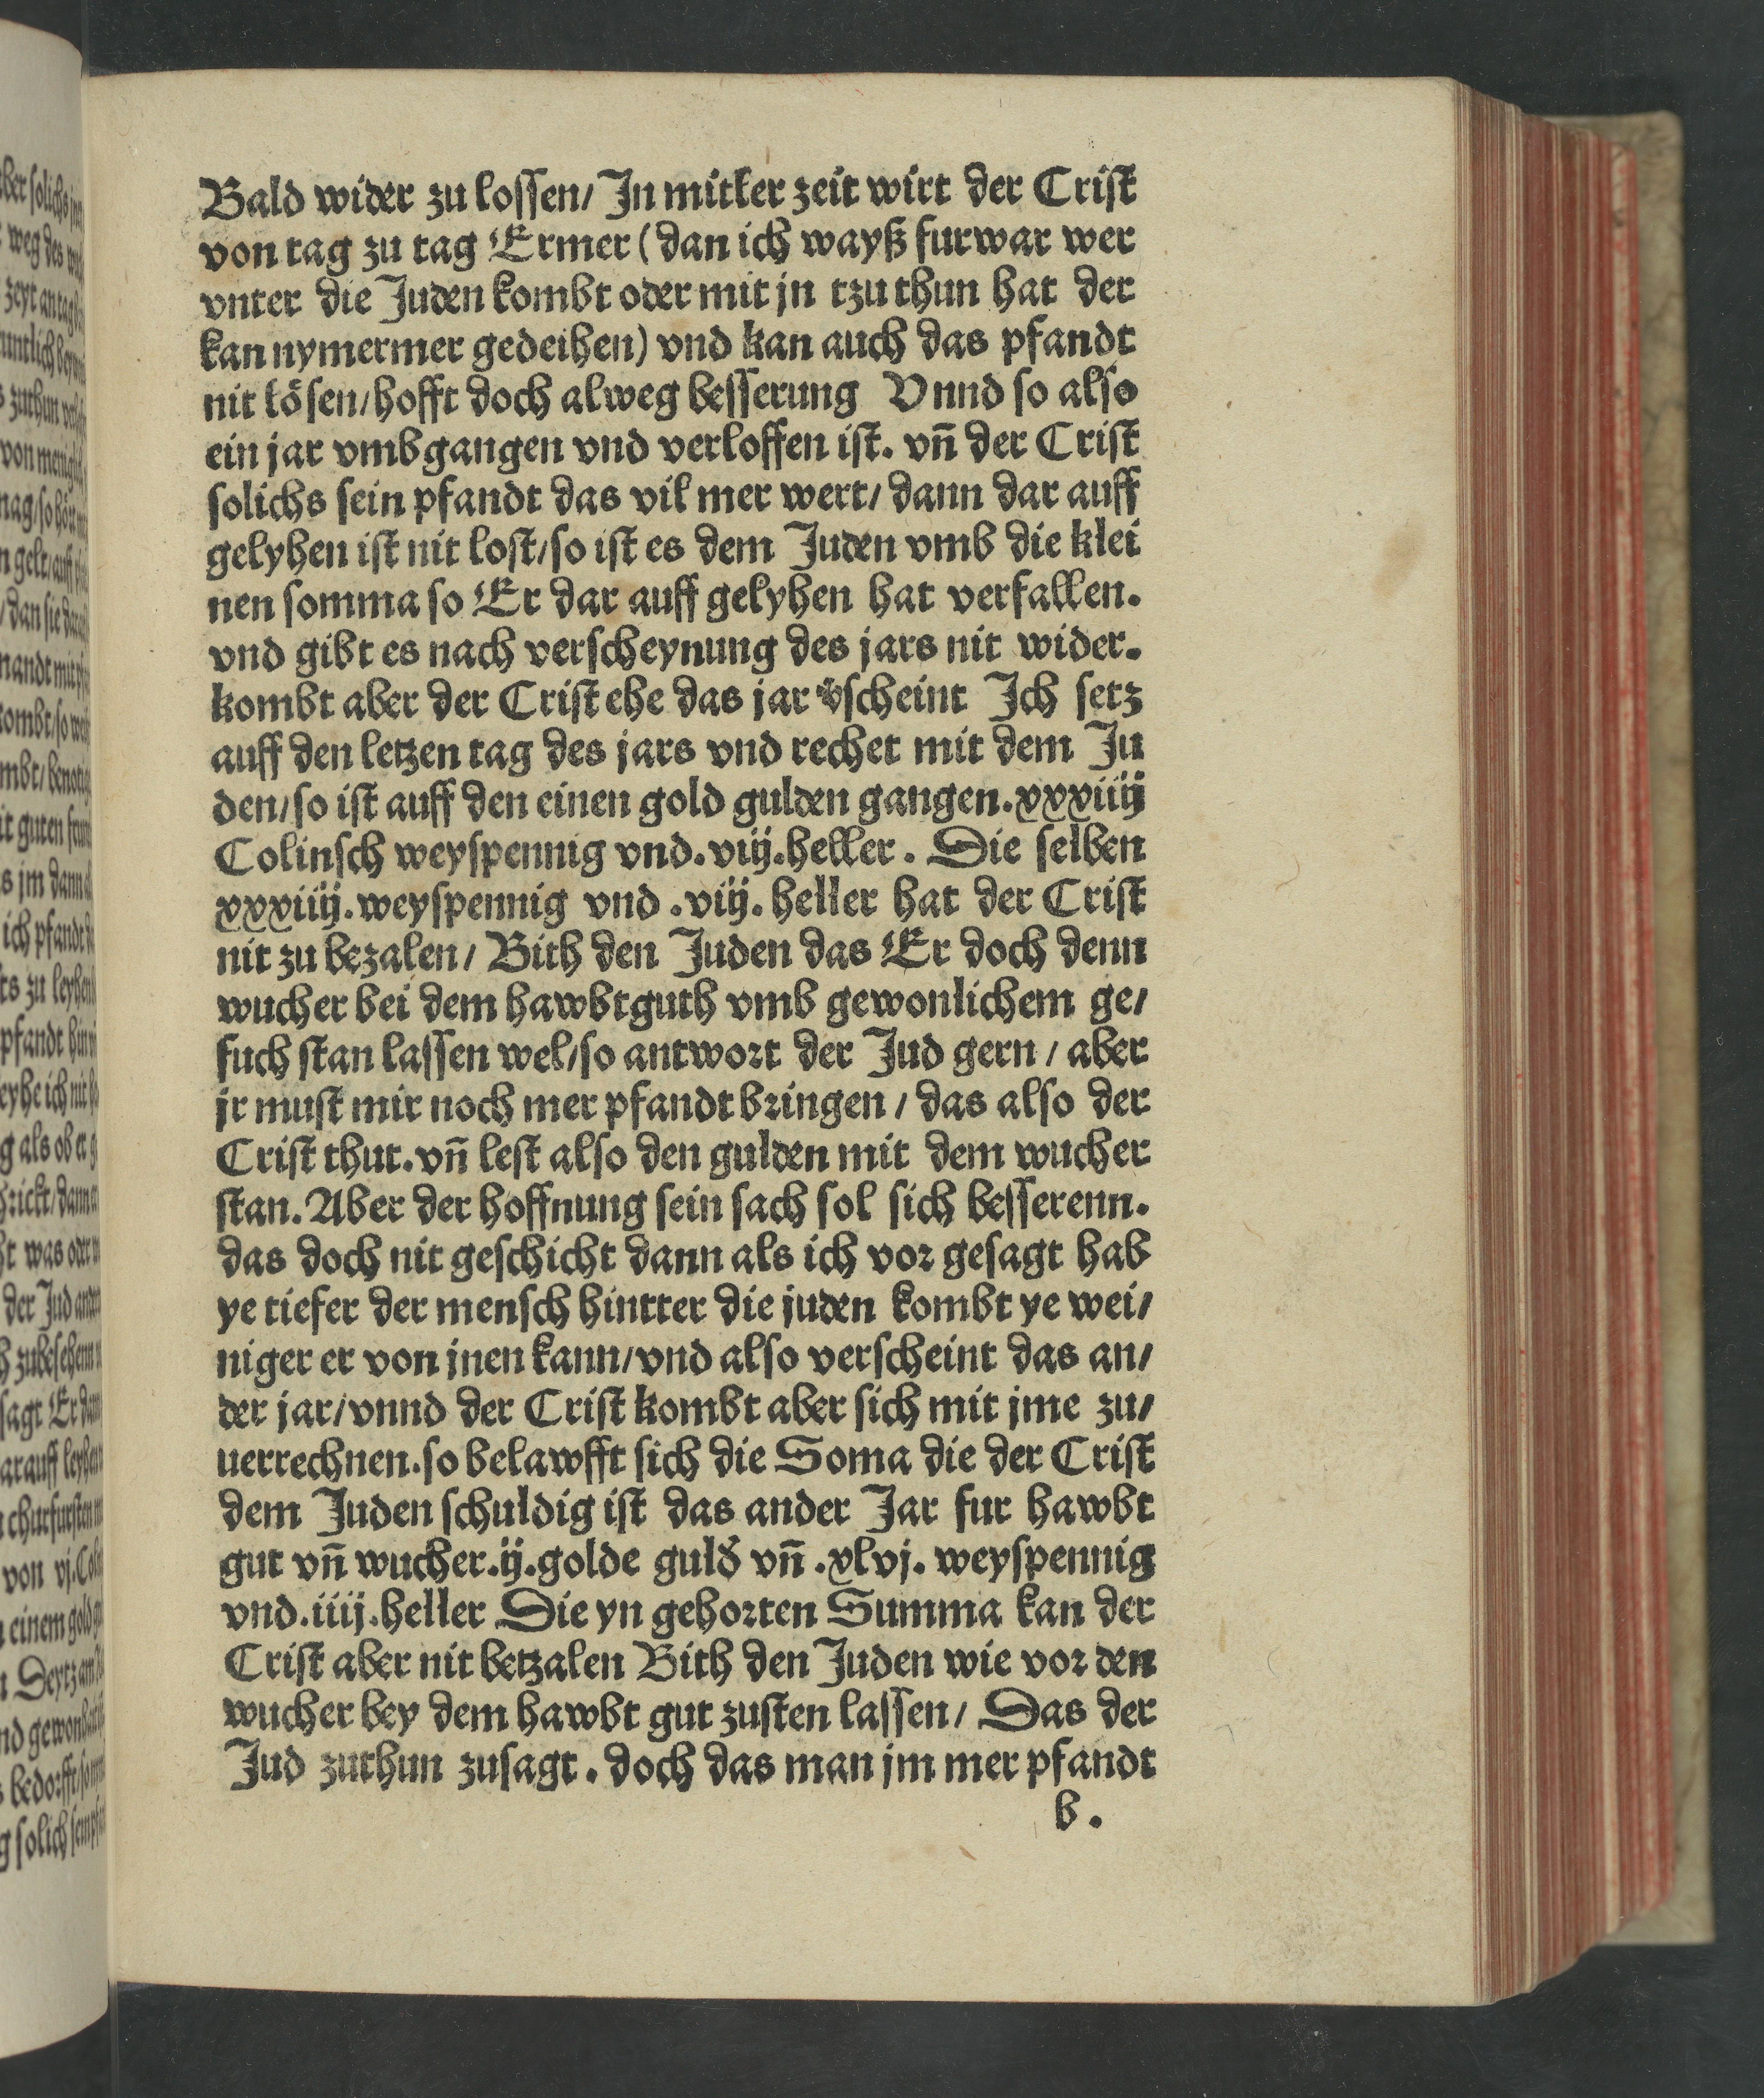 Bald wider zu lossen/ In mitler zeit wirt der Crist
von tag zu tag Ermer (dan ich wayß furwar wer
vnter die Juden kombt oder mit jn tzu thun hat der
kan nymermer gedeihen) vnd kan auch das pfandt
nit lösen/hofft doch alweg besserung Vnnd so also
ein jar vmbgangen vnd verloffen ist. vn̄ der Crist
solichs sein pfandt das vil mer wert/ dann dar auff
gelyhen ist nit lost/so ist es dem Juden vmb die klei
nen somma so Er dar auff gelyhen hat verfallen.
vnd gibt es nach verscheynung des jars nit wider.
kombt aber der Crist ehe das jar v̾scheint Ich setz
auff den letzen tag des jars vnd rechet mit dem Ju
den/so ist auff den einen gold gulden gangen.xxxiiij
Colinsch weyspennig vnd.viij.heller. Die selben
xxxiiij.weyspennig vnd .viij. heller hat der Crist
nit zu bezalen/ Bith den Juden das Er doch denn
wucher bei dem hawbtguth vmb gewonlichem ge/
such stan lassen wel/so antwort der Jud gern / aber
jr must mir noch mer pfandt bringen / das also der
Crist thut.vn̄ lest also den gulden mit dem wucher
stan. Aber der hoffnung sein sach sol sich besserenn.
das doch nit geschicht dann als ich vor gesagt hab
ye tiefer der mensch hintter die juden kombt ye wei/
niger er von jnen kann/vnd also verscheint das an/
der jar/vnnd der Crist kombt aber sich mit jme zu/
uerrechnen.so belawfft sich die Soma die der Crist
dem Juden schuldig ist das ander Jar fur hawbt
gut vn̄ wucher.ij.golde guld̾ vn̄ .xlvj. weyspennig
vnd.iiij.heller Die yn gehorten Summa kan der
Crist aber nit betzalen Bith den Juden wie vor den
wucher bey dem hawbt gut zusten lassen/ Das der
Jud zuthun zusagt. doch das man jm mer pfandt
b.